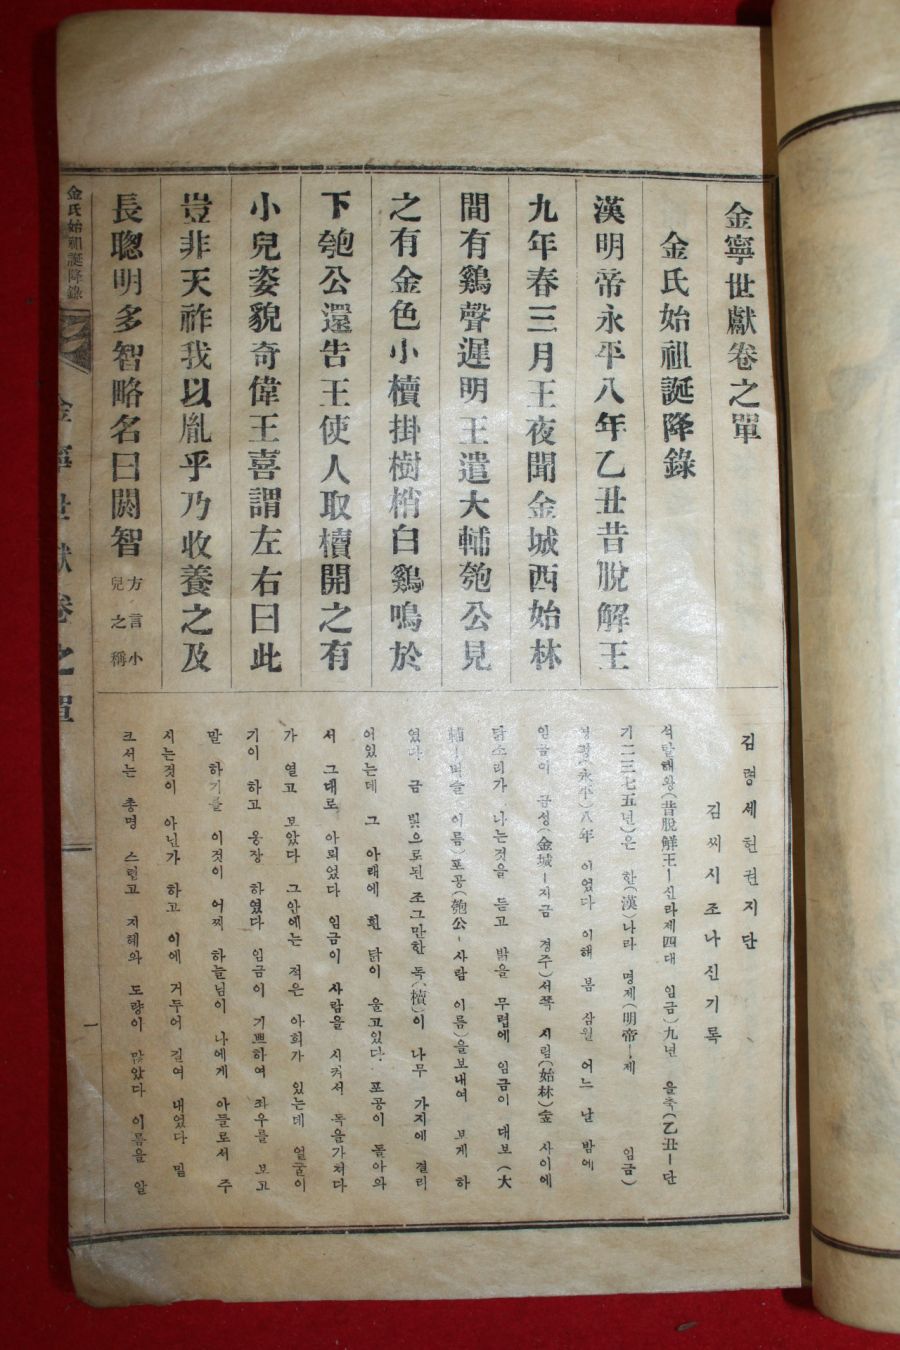 金寧世獻卷之單
金氏始祖誕降錄
漢明帝永平八年乙丑昔脫解王
九年春三月王夜聞金城西始林
間有鷄聲遲明王遣大輔匏公見
之有金色小櫝掛樹梢白鷄鳴於
下匏公還告王使人取櫝開之有
小兒姿貌奇偉王喜謂左右曰此
豈非天祚我以胤乎乃收養之及
長聰明多智略名曰閼智 方言小兒之稱
김령세헌권지단
김씨시조나신기록
석탈해왕(昔脫解王ー신라제四대 임금)九년 을축(乙丑ー단
기二三七五년)은 한(漢)나라 명제(明帝ー제 임금)
영평(永平)八年 이였다 이해 봄 삼월 어느 날 밤에
임금이 금성(金城ー지금 경주)서쪽 시림(始林)숲 사이에
닭소리가 나는것을 듣고 밝을 무렵에 임금이 대보(大
輔ー벼슬 이름)포공(匏公ー사람 이름)을보내여 보게 하
였다 금 빛으로된 조그만한 독(櫝)이 나무 가지에 결리
어있는데 그 아래에 흰 닭이 울고있다. 포공이 돌아와
서 그대로 아뢰었다 임금이 사람을 시켜서 독을가져다
가 열고 보았다 그안에는 적은 아희가 있는데 얼굴이
기이 하고 웅장 하였다 임금이 기쁘하여 좌우를 보고
말 하기를 이것이 어찌 하늘님이 나에게 아들로서 주
시는것이 아닌가 하고 이에 거두어 길여 내였다 밑
크서는 총명 스럽고 지혜와 도량이 많았다 이름을 알
金氏始祖誕降錄
金寧世獻卷之單
一